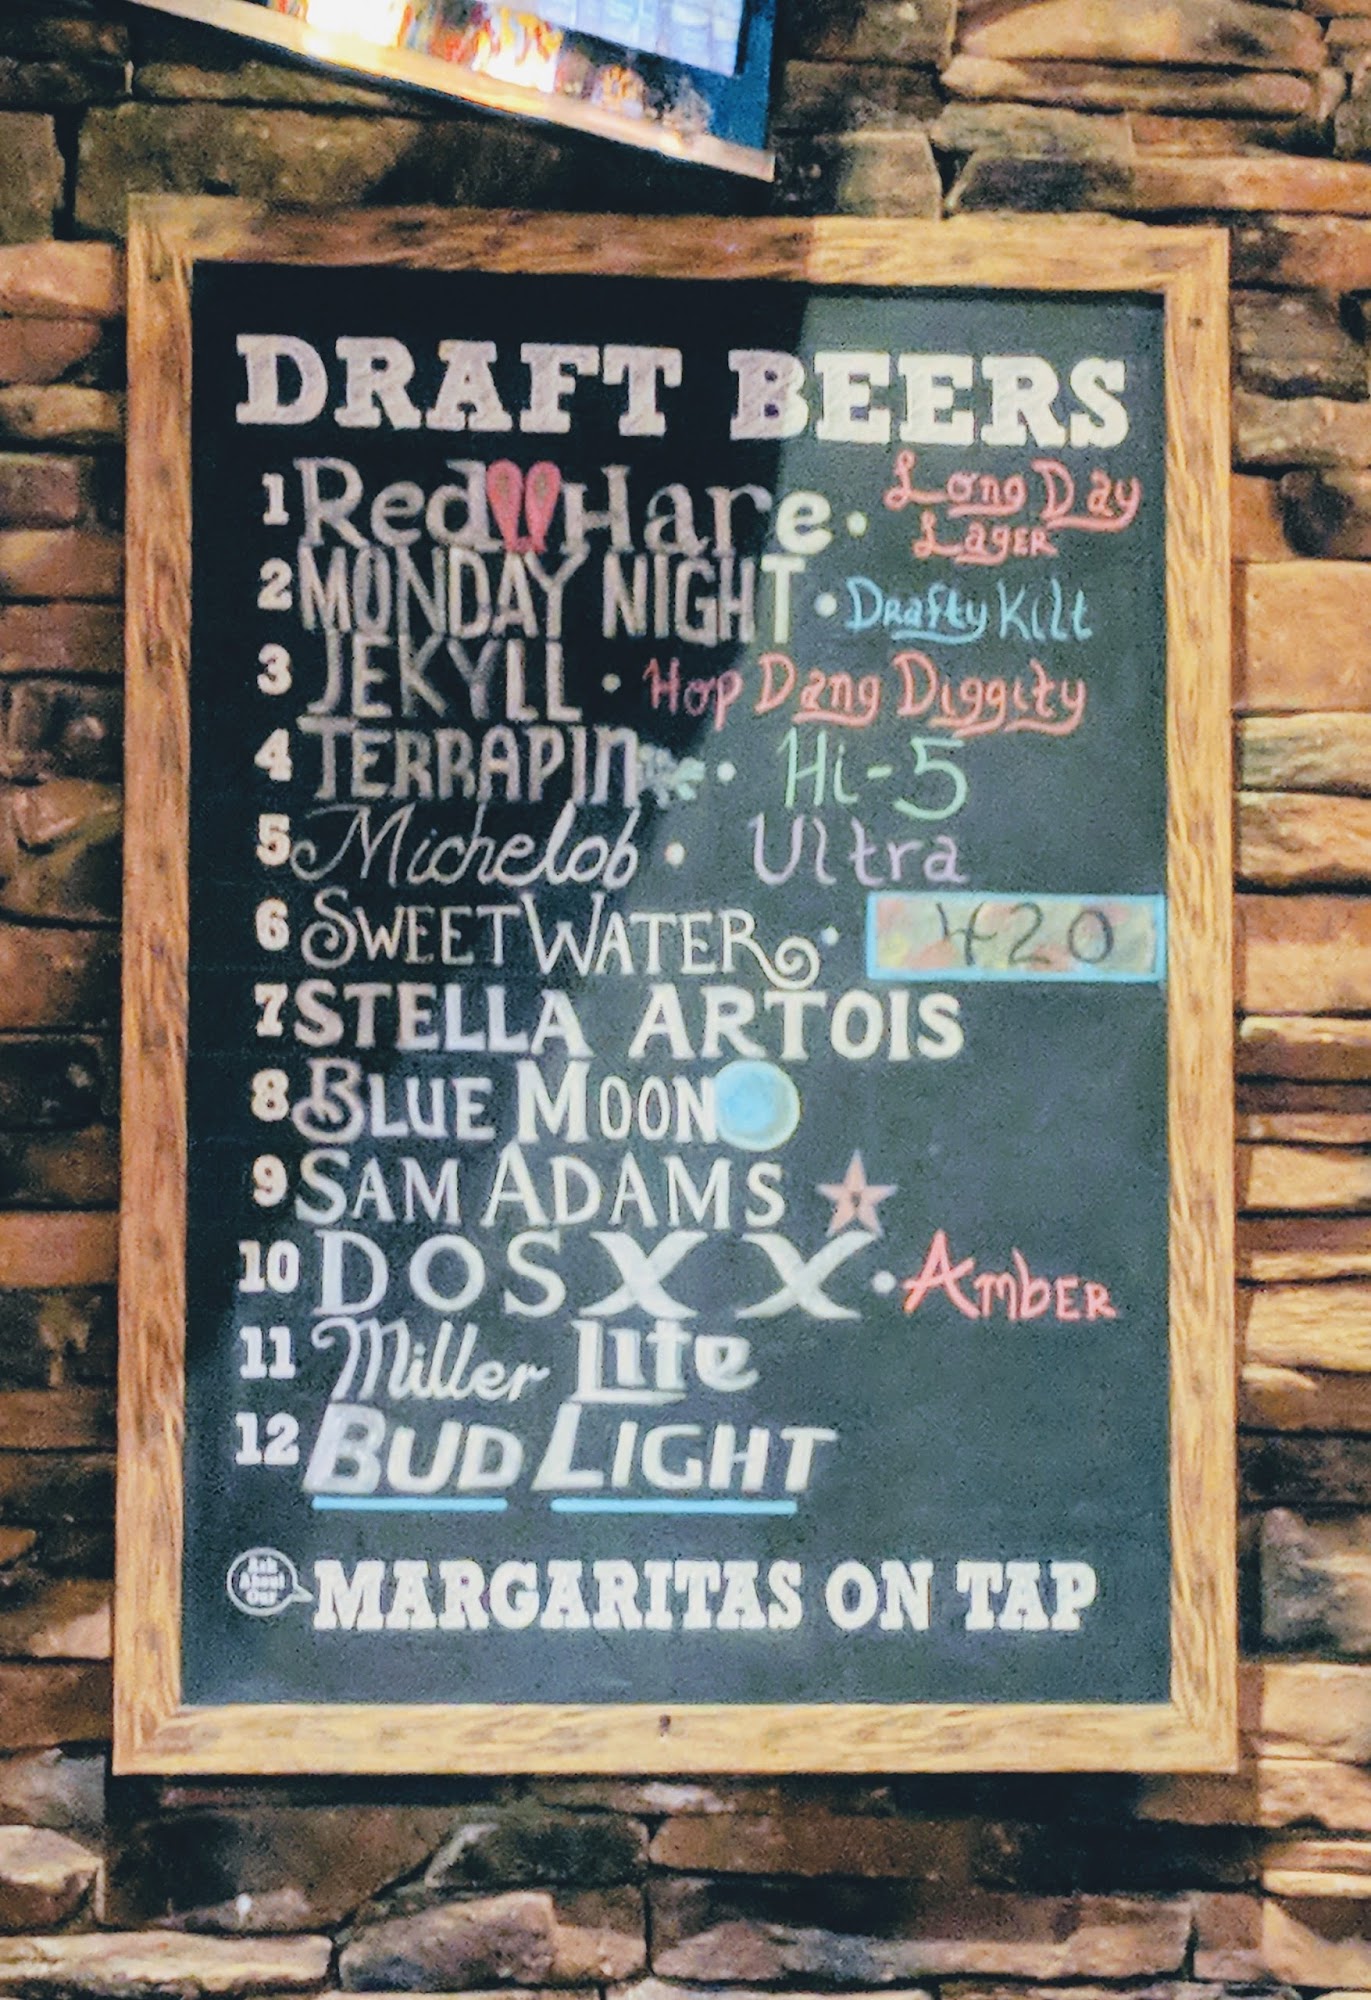 DRAFT BEERS
1 Red Hare • Long Day Lager
2 MONDAY NIGHT • Drafty Kilt
3 JEKYLL • Hop Dang Diggity
4 TERRAPIN • Hi-5
5 Michelob • Ultra
6 SWEETWATER • 420
7 STELLA ARTOIS
8 BLUE MOON
9 SAM ADAMS
10 DOS XX • AMBER
11 Miller Lite
12 BUD LIGHT
Ask About Our MARGARITAS ON TAP